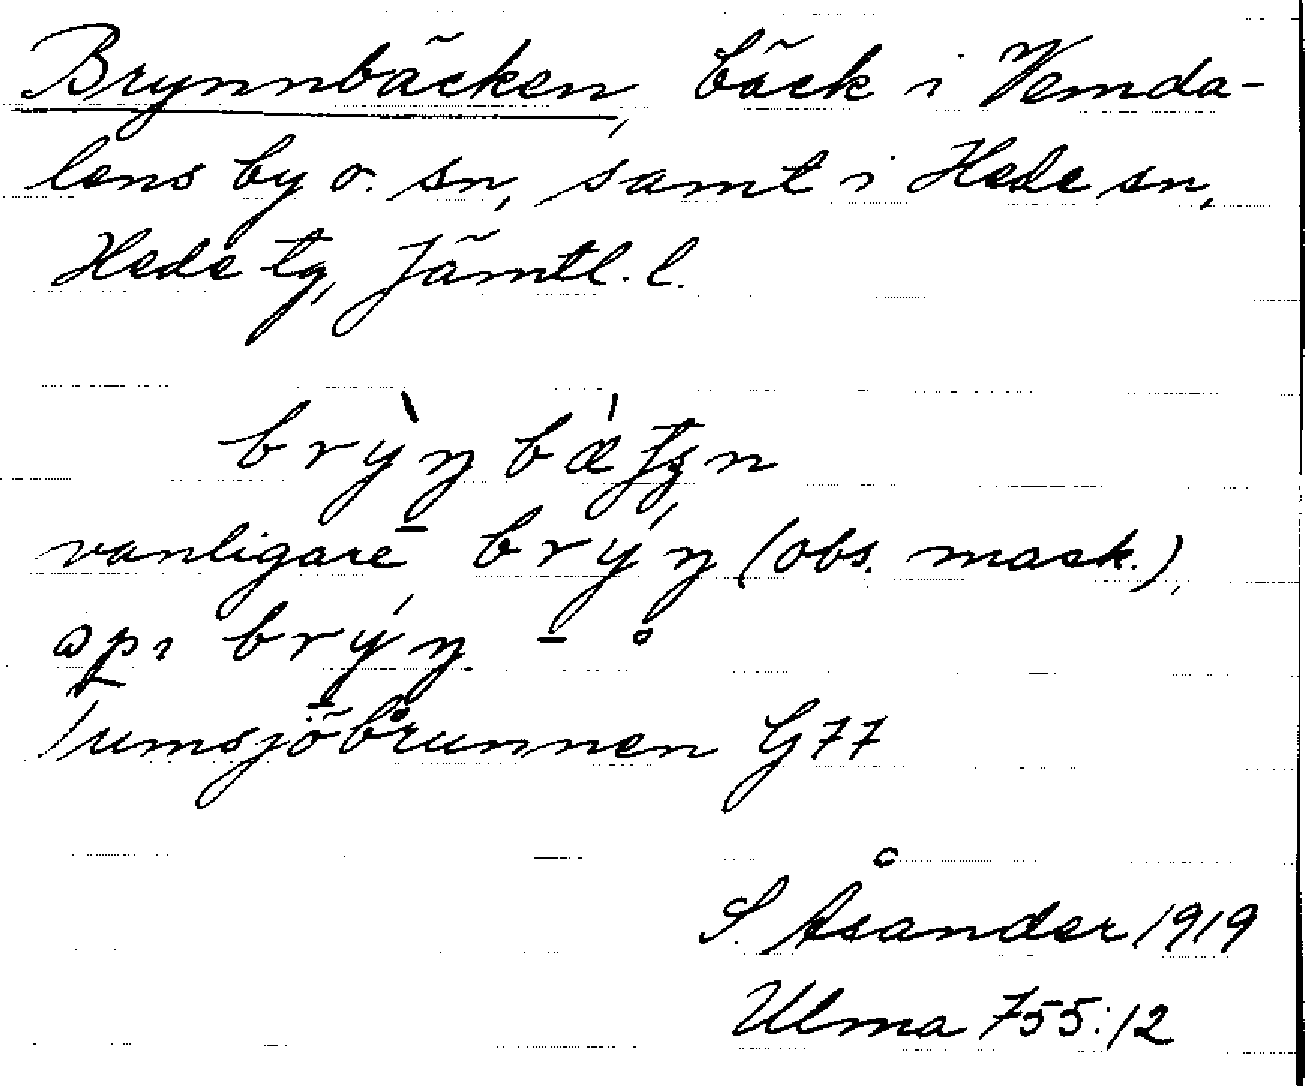 Brynnbäcken, bäck i Vemda-
lens by o. sn, samt i Hede sn,
Hede tg, Jämtl. l.
vanligare brýŋ (obs. mask.),
brýŋ
Tumsjöbrunnen G77
S. Åsander 1919
Ulma 755:12